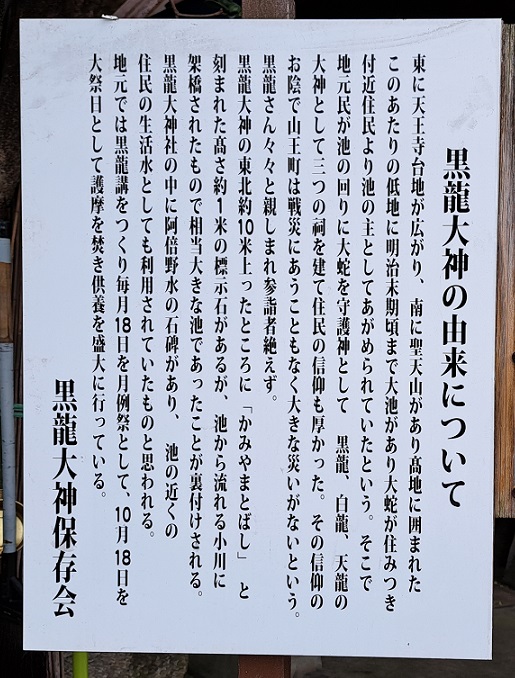 黒龍大神の由来について
東に天王寺台地が広がり、南に聖天山があり高地に囲まれた
このあたりの低地に明治末期頃まで大池があり大蛇が住みつき
付近住民より池の主としてあがめられていたという。そこで
地元民が池の回りに大蛇を守護神として　黒龍、白龍、天龍の
大神として三つの祠を建て住民の信仰も厚かった。その信仰の
お陰で山王町は戦災にあうこともなく大きな災いがないという。
黒龍さん々々と親しまれ参詣者絶えず。
黒龍大神の東北約10米上ったところに「かみやまとばし」と
刻まれた高さ約1米の標示石があるが、池から流れる小川に
架橋されたもので相当大きな池であったことが裏付けされる。
黒龍大神社の中に阿倍野水の石碑があり、池の近くの
住民の生活水としても利用されていたものと思われる。
地元では黒龍講をつくり毎月18日を月例祭として、10月18日を
大祭日として護摩を焚き供養を盛大に行っている。
黒龍大神保存会